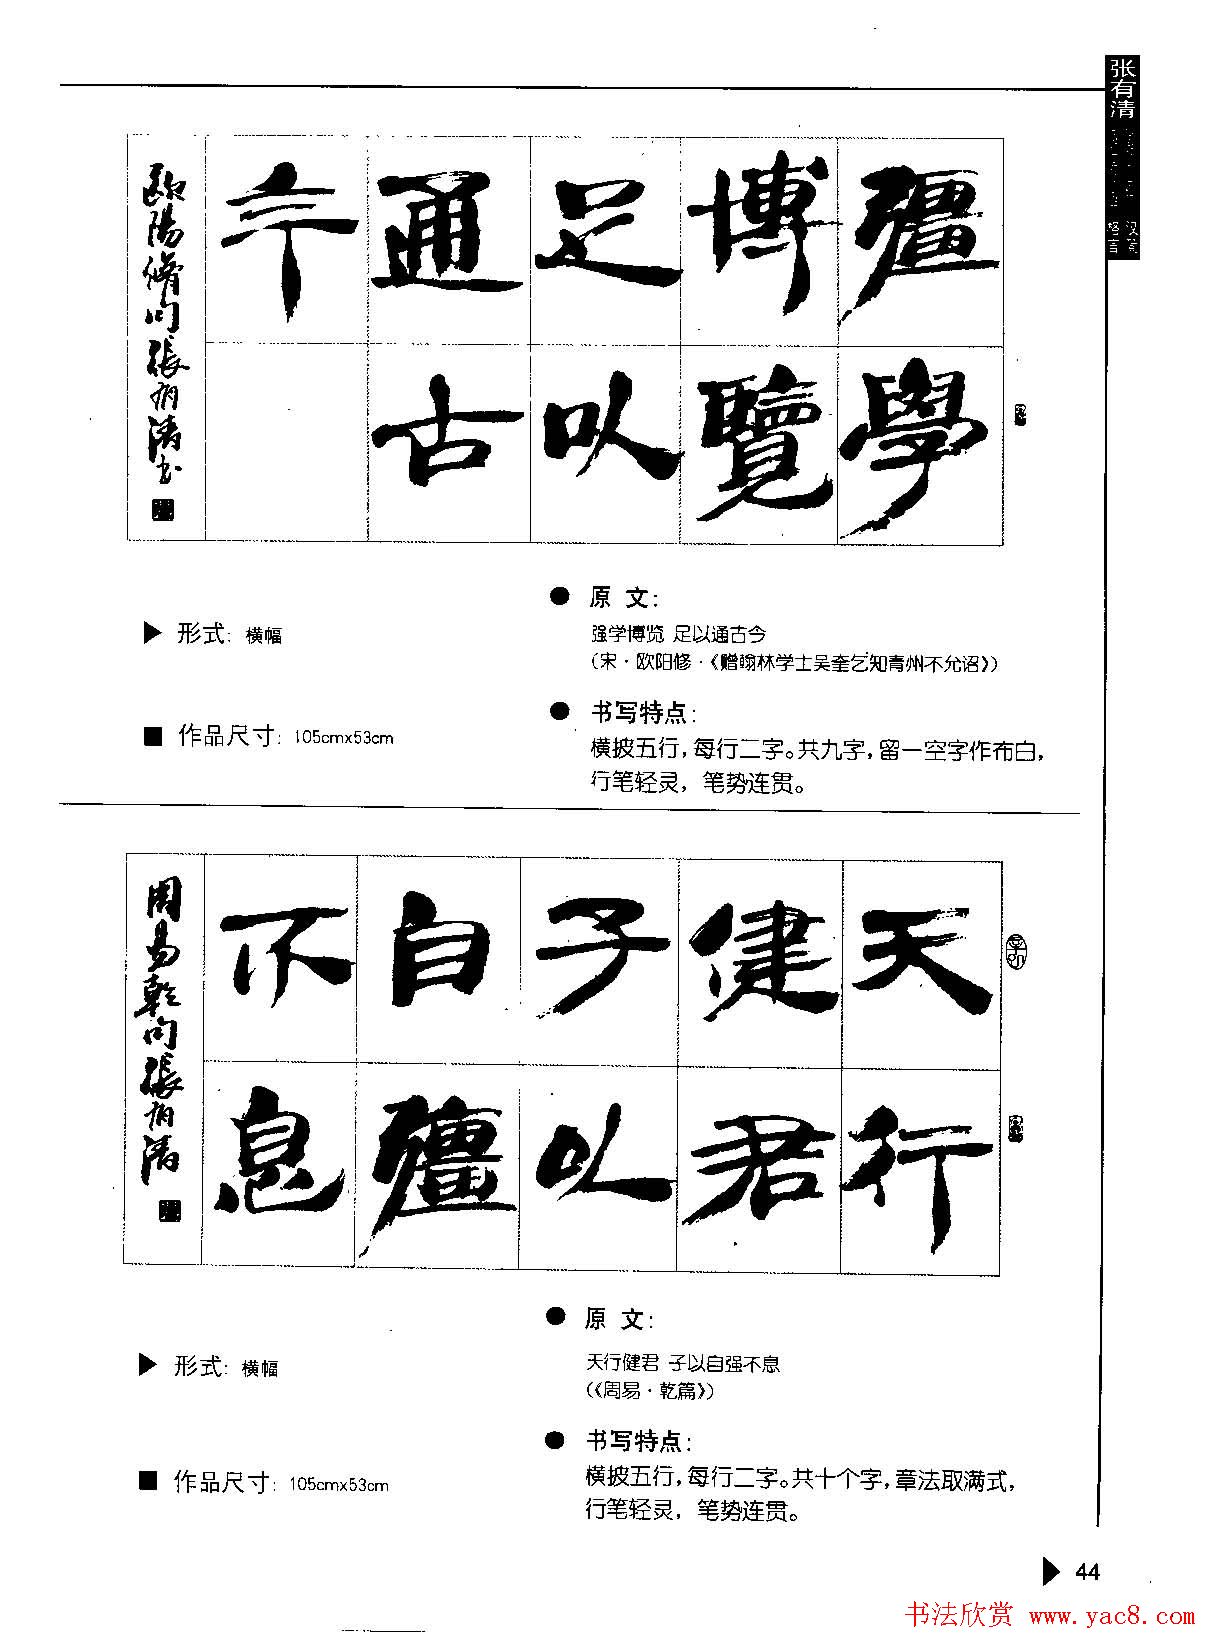 张有清
汉简
格言
彊學
博覽
足以
通古
今
歐陽脩句張有清书
▶ 形式: 横幅
■ 作品尺寸: 105cmx53cm
● 原 文:
强学博览 足以通古今
(宋·欧阳修·《赠翰林学士吴奎乞知青州不允诏》)
● 书写特点:
横披五行，每行二字。共九字，留一空字作布白，
行笔轻灵，笔势连贯。
天行
健君
子以
自彊
不息
周易乾句張有清
▶ 形式: 横幅
■ 作品尺寸: 105cmx53cm
● 原 文:
天行健君 子以自强不息
(《周易·乾篇》)
● 书写特点:
横披五行，每行二字。共十个字，章法取满式，
行笔轻灵，笔势连贯。
▶ 44
书法欣赏 www.yac8.com